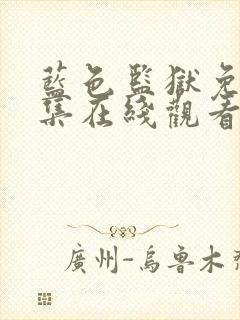 藍色監獄免
集在綫觀看
廣州-烏魯木齊